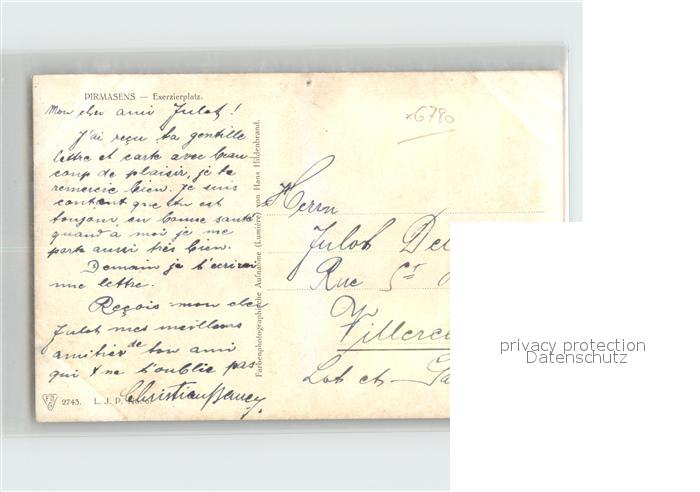 PIRMASENS — Exerzierplatz.
Mon cher ami Julot !
J'ai reçu ta gentille
lettre et carte avec beau
coup de plaisir, je te
remercie bien. Je suis
content que tu est
toujour en bonne santé
quand à moi je me
porte aussi très bien.
Demain je t'ecrirai
une lettre.
Reçois mon cher
Julot mes meilleurs
amitiés de ton ami
qui ne t'oublie pas
Christian
2743. L. J. P.
Farbenphotographische Aufnahme (Lumière) von Hans Hildenbrand.
x6780
Herrn
Julot De
Rue St
Villere
Lot et - Ga
privacy protection
Datenschutz